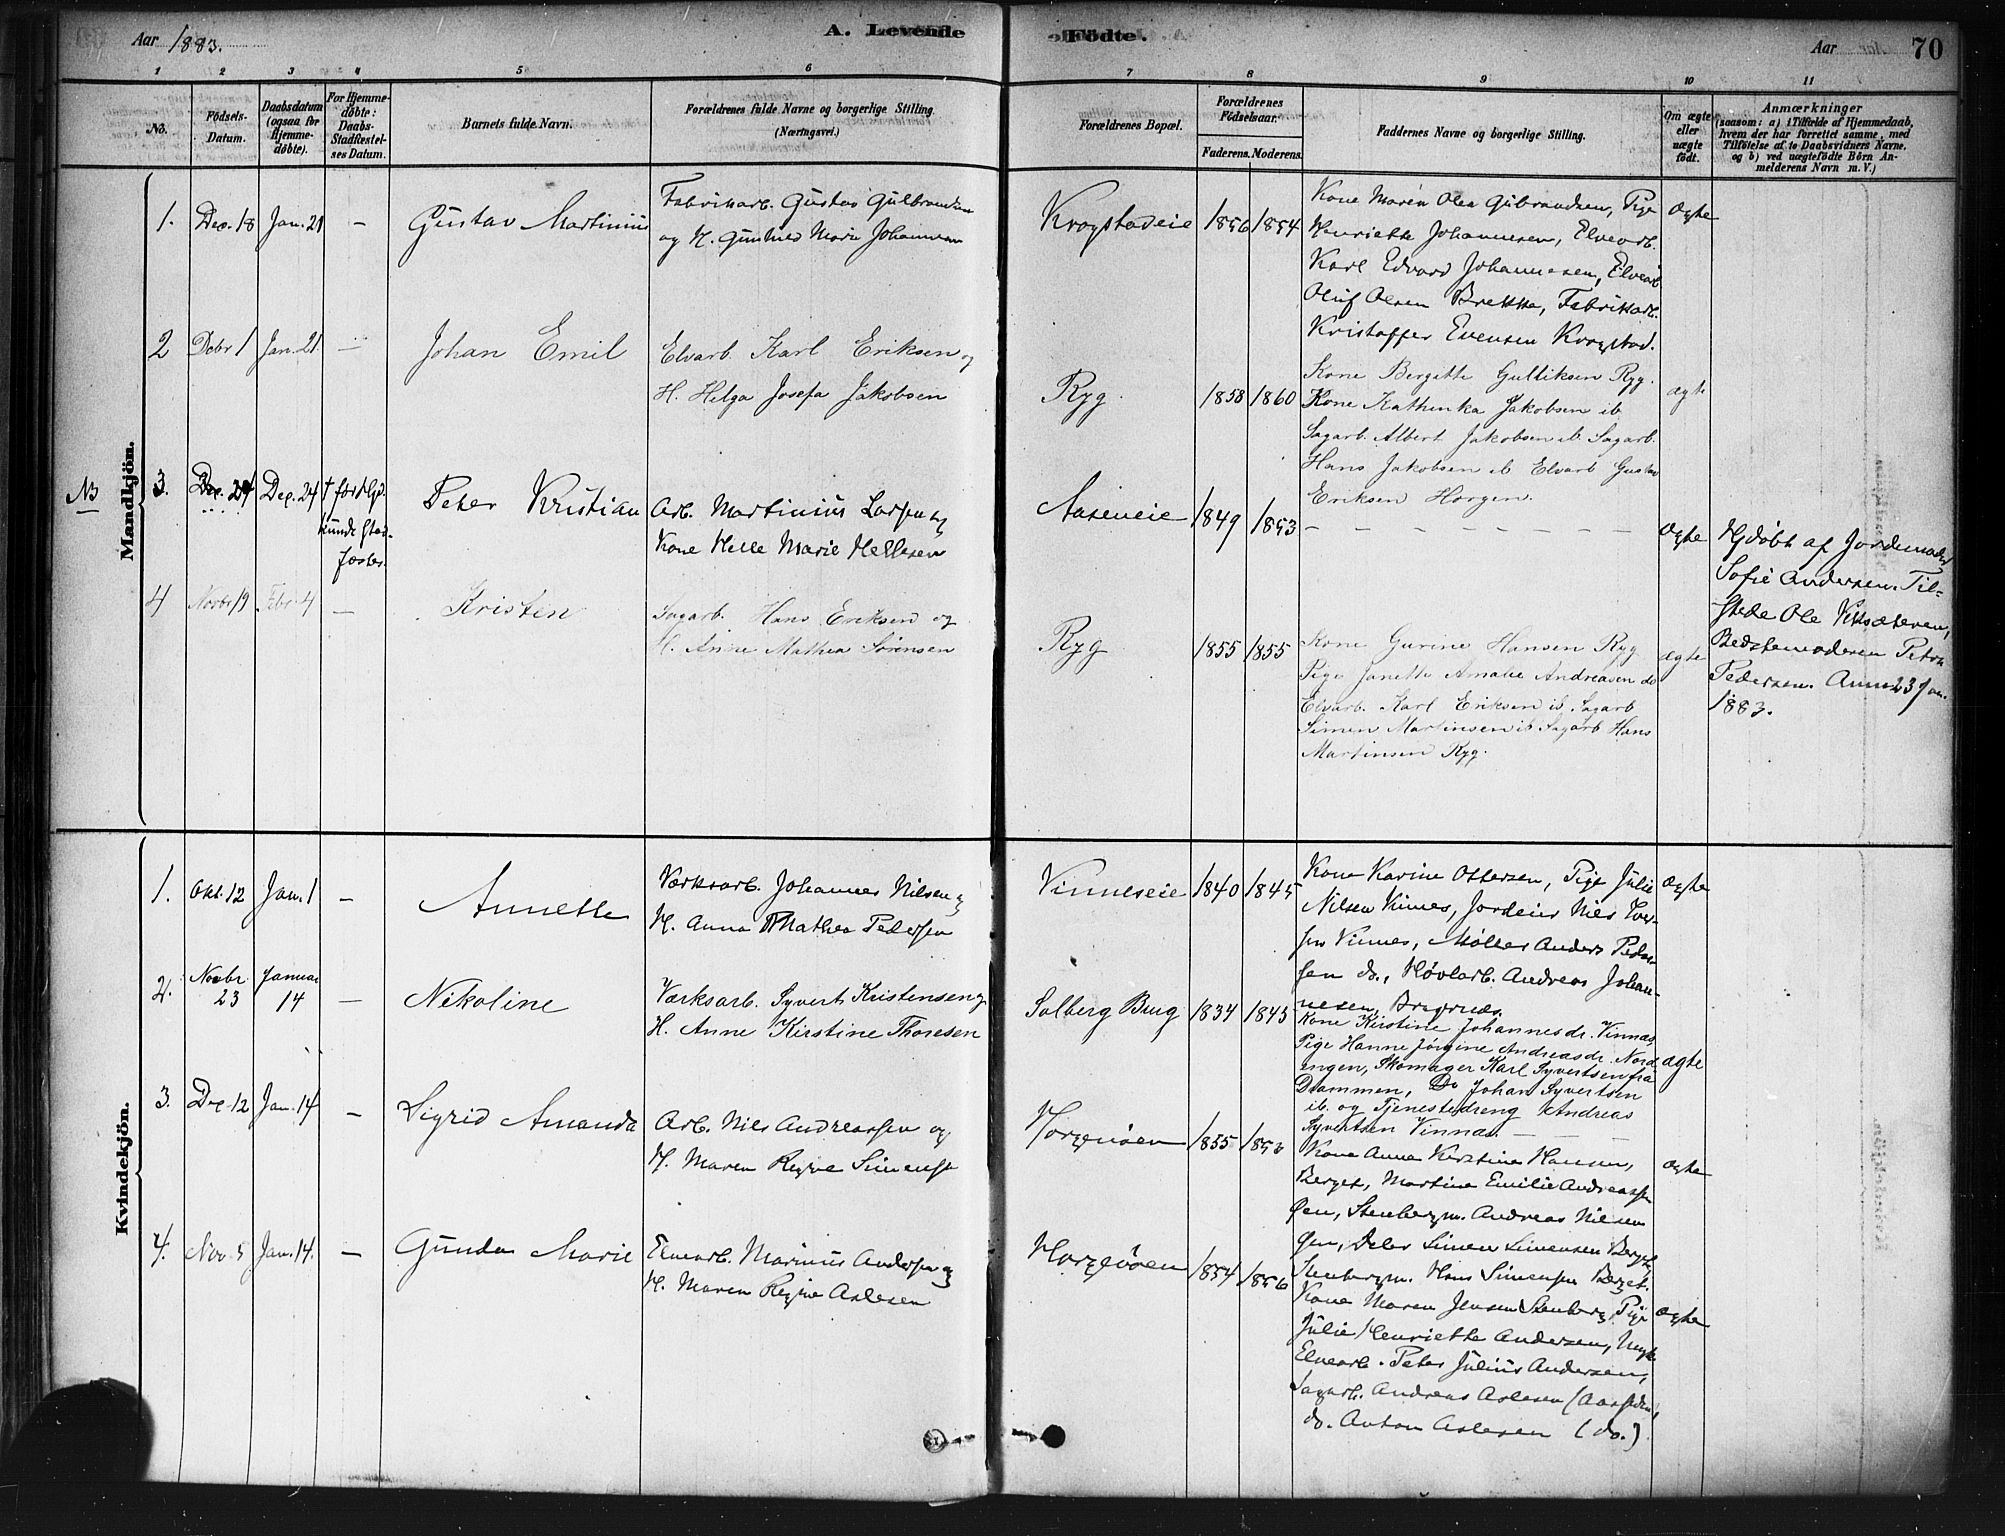 Aar 1883.
A. Levende
Födte.
Aar
70
1 2 3 4 5 6 7 8 9 10 11
No.
Födsels-
Datum.
Daabsdatum
(ogsaa for
Hjemme-
döbte).
For Hjemme-
döbte:
Daabs-
Stadfæstel-
ses Datum.
Barnets fulde Navn.
Forældrenes fulde Navne og borgerlige Stilling
(Næringsvei.)
Forældrenes Bopæl.
Forældrenes
Födselsaar.
Faderens. Moderens.
Faddernes Navne og borgerlige Stilling.
Om ægte
eller
uægte
født.
Anmærkninger
(saasom: a) i Tilfælde af Hjemmedaab,
hvem der har forrettet samme, med
Tilföielse af to Daabsvidners Navne,
og b) ved uægtefödte Börn An-
melderens Navn m. V.)
Mandkjön.
1. Dec. 18 Jan. 21 — Gustav Martinius
Fabrikarb. Gustav Gulbrandsen
og H. Gunhild Marie Johannesen
Krogstadeie 1856 1854
Kone Maren Olea Gulbrandsen, Pige
Henriette Johannesen, Elvearb.
Karl Edvard Johannesen, Elvearb.
Oluf Olsen Brekke, Fabrikarb.
Kristoffer Evensen Krogstad.
ægte
2 Debr 1 Jan. 21 — Johan Emil
Elvarb. Karl Eriksen og
H. Helga Josefa Jakobsen
Ryg. 1858 1860
Kone Bergitte Gulliksen Ryg.
Kone Kathinka Jakobsen ib
Sagarb. Albert Jakobsen ib. Sagarb.
Hans Jakobsen ib Elvarb Gustav
Eriksen Horgen.
ægte
NB 3. Dec. 24 Dec. 24 † førd Gd.
kunde stad-
fæstes.
Peter Kristian
Arb. Martinius Larsen og
Kone Helle Marie Hellesen
Aaseneie 1849 1853 — — — — — — ægte
Hjdøbt af Jordemoder
Sofie Andersen. Til-
stede Ole Viksæteren,
Bedstemoderen Petra
Pedersen. Anm. 23 Jan.
1883.
4 Novbr 19 Febr 4 — Kristen
Sagarb. Hans Eriksen og
H. Anne Mathea Sørensen
Ryg 1855 1855
Kone Gurine Hansen Ryg
Pige Janette Amalie Andreasen do
Elvarb. Karl Eriksen ib. Sagarb
Simen Martinsen ib Sagarb Hans
Martinsen Ryg.
ægte
Kvindekjön.
1. Okt. 12 Jan. 1 — Annette
Værksarb. Johannes Nilsen og
H. Anna Mathea Pedersen
Vinneseie 1840 1845
Kone Karine Ottersen, Pige Julie
Nilsen Vinnes, Jordeier Nils Iver-
sen Vinnes, Møller Anders Peder-
sen do., Høvlarb. Andreas Johan-
nesen, Bragrnæs.
ægte
2. Novbr
23
Januar
14
— Nikoline
Værksarb. Syvert Kristensen og
H. Anne Kirstine Thoresen
Solberg Brug 1834 1845
Kone Kirstine Johannesdr. Vinnas,
Pige Hanne Jørgine Andreasdr. Nord-
engen, Skomager Karl Syvertsen fra
Drammen, Do Johan Syvertsen
ib. og Tjenestedreng Andreas
Syvertsen Vinnas. — — —
ægte
3. Dec. 12 Jan. 14 — Sigrid Amanda
Arb. Nils Andreassen og
H. Maren Regine Simensen
Horgenøen 1855 1853
Kone Anne Kirstine Hansen,
Berget, Martine Emilie Andreassen
Øen, Stenbergm. Andreas Nilsen
Øen, Peter Simen Simensen Berget,
Stenbergm. Hans Simensen Berget.
ægte
4. Nov 5 Jan. 14. — Gunda Marie
Elvearb. Marinus Andersen og
H. Maren Regine Aslesen
Horgenøen 1854 1856
Kone Maren Jensen Stenberg, Pige
Julie Henriette Andersen, Ungk.
Elvearb. Peter Julius Andersen,
Sagarb. Andreas Aslesen (Aasstden)
do. Anton Aslesen (do.)
ægte